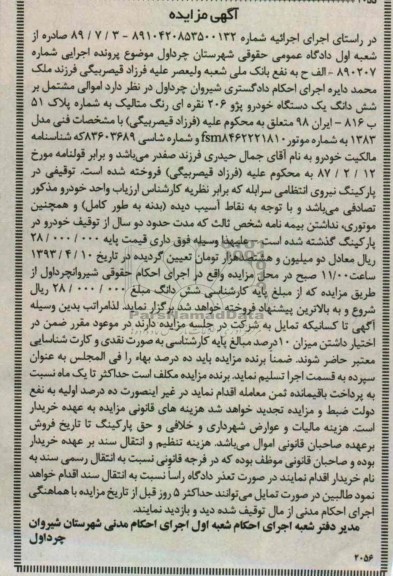 آگهی مزایده
در راستای اجرای اجرائیه شماره ۸۹۱۰۴۲۰۸۵۳۵۰۰۱۳۲ - ۳ / ۷ / ۸۹ صادره از
شعبه اول دادگاه عمومی حقوقی شهرستان چرداول موضوع پرونده اجرایی شماره
۸۹۰۲۰۷ - الف ح به نفع بانک ملی شعبه ولیعصر علیه فرزاد قیصربیگی فرزند ملک
محمد دایره اجرای احکام دادگستری شیروان چرداول در نظر دارد اموالی مشتمل بر
شش دانگ یک دستگاه خودرو پژو ۲۰۶ نقره ای رنگ متالیک به شماره پلاک ۵۱
ب ۸۱۶ - ایران ۹۸ متعلق به محکوم علیه (فرزاد قیصربیگی) با مشخصات فنی مدل
۱۳۸۳ به شماره موتور fsm۸۴۶۲۲۲۱۸۱۰ و شماره شاسی ۸۳۶۰۳۶۸۹ که شناسنامه
مالکیت خودرو به نام آقای جمال حیدری فرزند صفدر می‌باشد و برابر قولنامه مورخ
۱۲ / ۲ / ۸۷ به محکوم علیه (فرزاد قیصربیگی) فروخته شده است. توقیفی در
پارکینگ نیروی انتظامی سرابله که برابر نظریه کارشناس ارزیاب واحد خودرو مذکور
تصادفی می‌باشد و با توجه به نقاط آسیب دیده (بدنه به طور کامل) و همچنین
موتوری، نداشتن بیمه نامه شخص ثالث که مدت حدود دو سال از توقیف خودرو در
پارکینگ گذشته شده است . علیهذا وسیله فوق داری قیمت پایه ۲۸/۰۰۰/۰۰۰
ریال معادل دو میلیون و هشتصدهزار تومان تعیین گردیده در تاریخ ۱۰ / ۴ / ۱۳۹۳
ساعت ۱۱/۰۰ صبح در محل مزایده واقع در اجرای احکام حقوقی شیروانچرداول از
طریق مزایده که از مبلغ پایه کارشناسی شش دانگ مبلغ ۲۸/۰۰۰/۰۰۰ ریال
شروع و به بالاترین پیشنهاد فروخته خواهد شد برگزار نماید. لذامراتب بدین وسیله
آگهی تا کسانیکه تمایل به شرکت در جلسه مزایده دارند در موعود مقرر ضمن در
اختیار داشتن میزان ۱۰درصد مبالغ پایه کارشناسی به صورت نقدی و کارت شناسایی
معتبر حاضر شوند. ضمناً برنده مزایده باید ده درصد بهاء را فی المجلس به عنوان
سپرده به قسمت اجرا تسلیم نماید. برنده مزایده مکلف است حداکثر تا یک ماه نسبت
به پرداخت باقیمانده ثمن معامله اقدام نماید در غیر اینصورت ده درصد اولیه به نفع
دولت ضبط و مزایده تجدید خواهد شد هزینه های قانونی مزایده به عهده خریدار
است. هزینه مالیات و عوارض شهرداری و خلافی و حق پارکینگ تا تاریخ فروش
برعهده صاحبان قانونی اموال می‌باشد. هزینه تنظیم و انتقال سند بر عهده خریدار
بوده و صاحبان قانونی موظف بوده که در فرجه قانونی نسبت به انتقال رسمی سند به
نام خریدار اقدام نمایند در صورت تعذر دادگاه راساً نسبت به انتقال سند اقدام خواهد
نمود طالبین در صورت تمایل می‌توانند حداکثر ۵ روز قبل از تاریخ مزایده با هماهنگی
اجرای احکام مدنی از مال توقیف شده دید و بازدید نمایند.
مدیر دفتر شعبه اجرای احکام شعبه اول اجرای احکام مدنی شهرستان شیروان
چرداول
۲۰۵۶